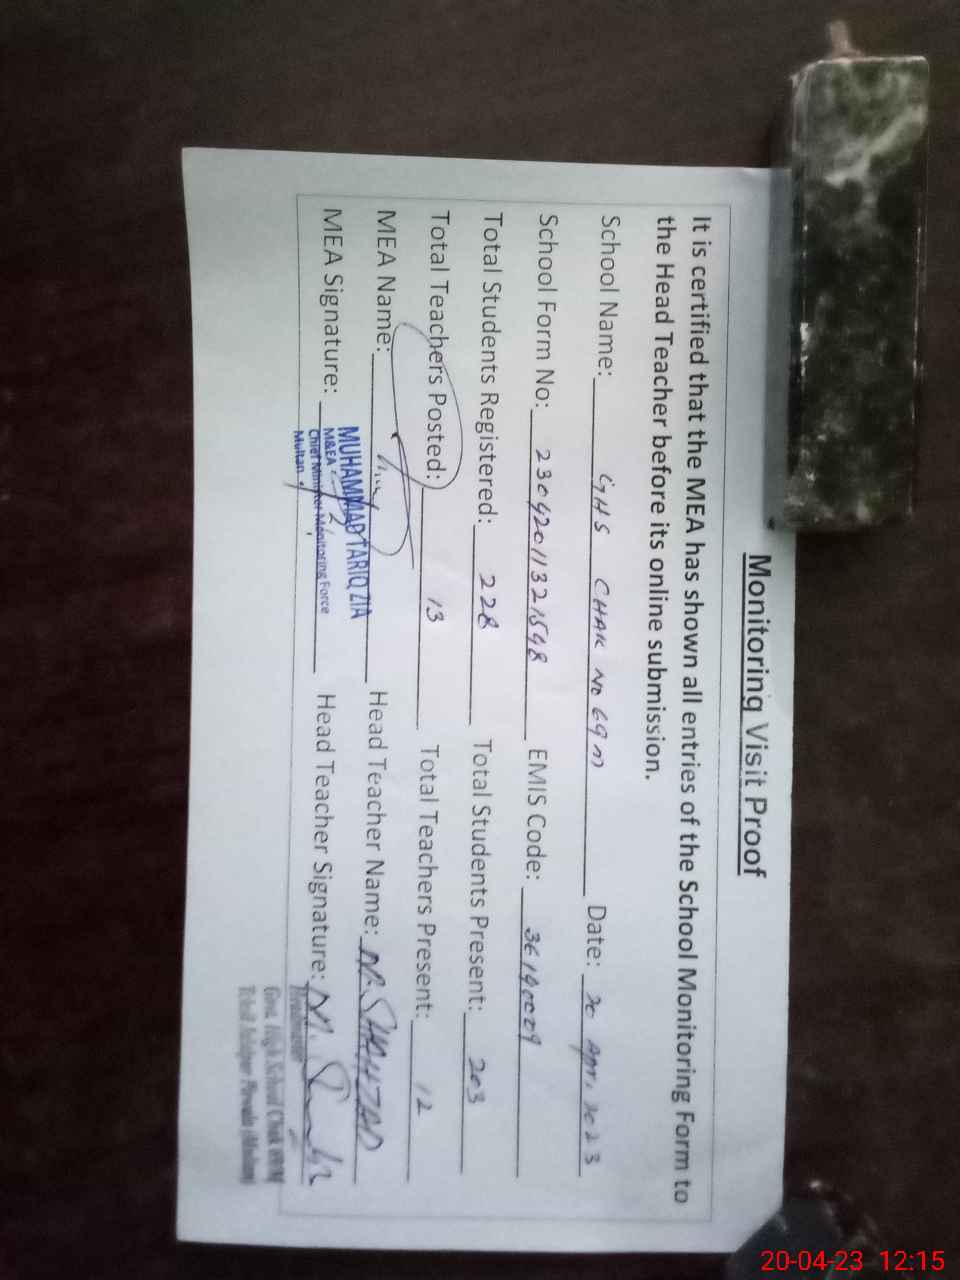 Monitoring Visit Proof
It is certified that the MEA has shown all entries of the School Monitoring Form to
the Head Teacher before its online submission.
School Name: GHS CHAK NO 69 M Date: 20 Apr. 2023
School Form No: 23042011321548 EMIS Code: 36190009
Total Students Registered: 228 Total Students Present: 203
Total Teachers Posted: 13 Total Teachers Present: 12
MEA Name: Head Teacher Name: M. SHAHZAD
MUHAMMAD TARIQ ZIA
MEA Signature: Head Teacher Signature:
M&EA
Chief Minister Monitoring Force
Multan
Headmaster
Govt. High School Chak
20-04-23 12:15